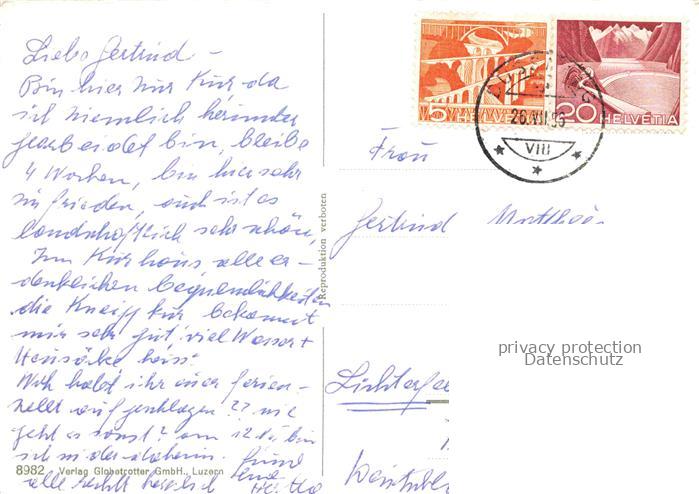 Liebe Gertrud –
Bin hier zur Kur, da
ich ziemlich herunter
gearbeidet bin, bleibe
4 Wochen, bin hier sehr
zufrieden, auch ist es
landschaftlich sehr schön,
Im Kurhaus, alle er-
denklichen Bequemlichkeiten
die Kneipp Kur bekommt
mir sehr gut, viel Wasser +
Heusäcke heiss.
Wo habt ihr euer Ferien-
zellt aufgeschlagen?? wie
geht es sonst? am 12. bin
ich wieder daheim.
alle recht herzlich
8982 Verlag Globetrotter GmbH., Luzern
Reproduktion verboten
5 HELVETIA
20 HELVETIA
26.VII.56
VIII
Frau
Gertrud
Lichterfe
privacy protection
Datenschutz